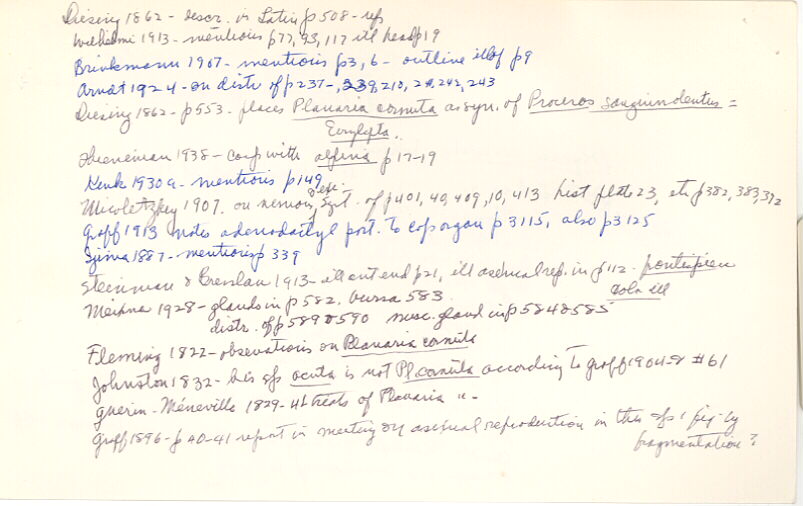 Diesing 1862 - descr. in Latin p 508 - refs
Wilhelmi 1913 - mentions p 77, 93, 117 ill head p 19
Brinkmann 1907 - mentions p3, 6 - outline ill of p9
Arndt 1924 - on distr of p 237-, 239, 210, 242, 243
Diesing 1862 - p 553 - places Planaria cornuta as syn. of Proceros sanguinolentus =
Eurylepta.
Thieneman 1938 - comp with alpina p 17-19
Kenk 1930a - mentions p 149
Micoletzky 1907. on nervous & exc. syst. of p 401, 40, 409, 10, 413 hist plate 23, etc p 382, 383, 392
Graff 1913 notes adenodactyl port. to cop organ p 3115, also p 3125
Ijima 1887 - mentions p 339
Steinman & Bresslau 1913 - ill ant end p 21, ill asexual rep. in p 112. frontispiece
Meixner 1928 - glands in p 582, bursa 583. colr ill
distr. of p 589 & 590 musc. gland in p 584 & 585
Fleming 1822 - observations on Planaria cornuta
Johnston 1832 - his sp acuta is not Pl cornuta according to Graff 1904-8 #61
Guerin-Méneville 1829-44 treats of Planaria " -
Graff 1896 - p 40-41 report in meeting on asexual reproduction in this sp; by
fragmentation ?